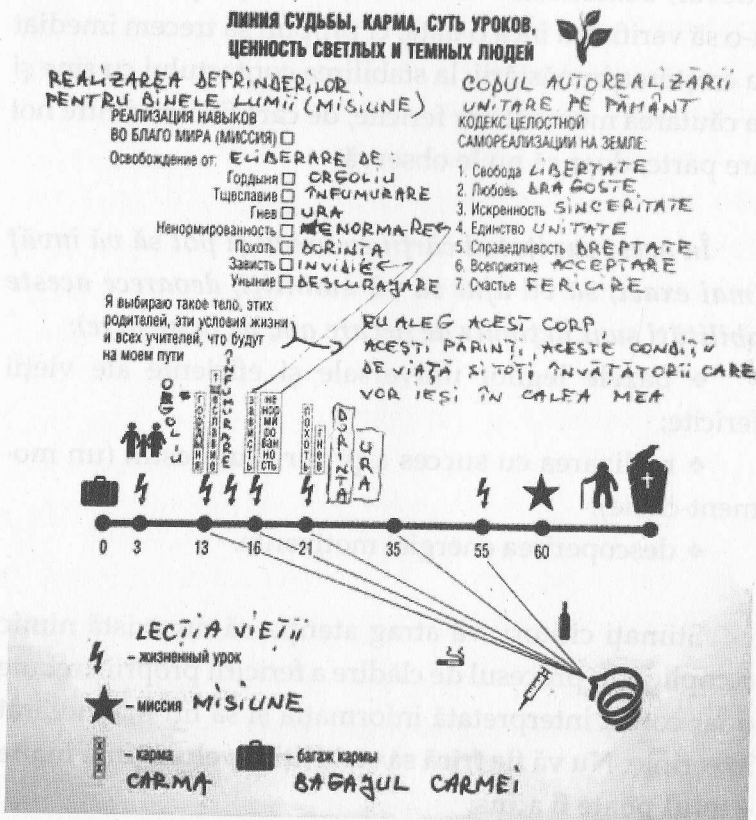 ЛИНИЯ СУДЬБЫ, КАРМА, СУТЬ УРОКОВ,
ЦЕННОСТЬ СВЕТЛЫХ И ТЕМНЫХ ЛЮДЕЙ
REALIZAREA DEPRINDERILOR
PENTRU BINELE LUMII (MISIUNE)
РЕАЛИЗАЦИЯ НАВЫКОВ
ВО БЛАГО МИРА (МИССИЯ)
Освобождение от: ELIBERARE DE
Гордыня ORGOLIU
Тщеславие ÎNFUMURARE
Гнев URA
Ненормированность ENORMARE
Похоть DORINȚA
Зависть INVIDIE
Уныние DESCURAJARE
CODUL AUTOREALIZĂRII
UNITARE PE PĂMÂNT
КОДЕКС ЦЕЛОСТНОЙ
САМОРЕАЛИЗАЦИИ НА ЗЕМЛЕ:
1. Свобода LIBERTATE
2. Любовь DRAGOSTE
3. Искренность SINCERITATE
4. Единство UNITATE
5. Справедливость DREPTATE
6. Всеприятие ACCEPTARE
7. Счастье FERICIRE
Я выбираю такое тело, этих
родителей, эти условия жизни
и всех учителей, что будут
на моем пути
EU ALEG ACEST CORP
ACEȘTI PĂRINȚI, ACESTE CONDIȚII
DE VIAȚĂ ȘI TOȚI ÎNVĂȚĂTORII CARE
VOR IEȘI ÎN CALEA MEA
ORGOLIU
ГОРДЫНЯ
ТЩЕСЛАВИЕ
ЗАВИСТЬ
НЕНОРМИРОВАННОСТЬ
ПОХОТЬ
ГНЕВ
DORINȚA
URA
0 3 13 16 21 35 55 60
LECȚIA VIEȚII
– жизненный урок
– миссия MISIUNE
– карма
– багаж кармы
CARMA
BAGAJUL CARMEI